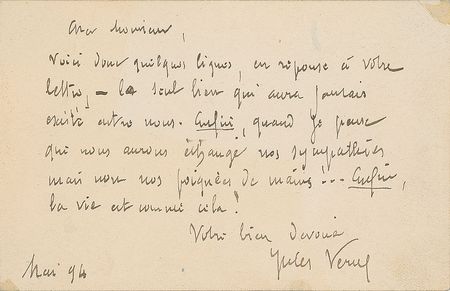 Cher Monsieur,
Voici donc quelques lignes, en réponse à votre
lettre, – le seul lien qui aura jamais
existé entre nous. Enfin, quand je pense
que nous aurons échangé nos sympathies
mais non nos poignées de mains!... Enfin,
la vie est comme cela!
Votre bien dévoué
Jules Verne
Mai 94